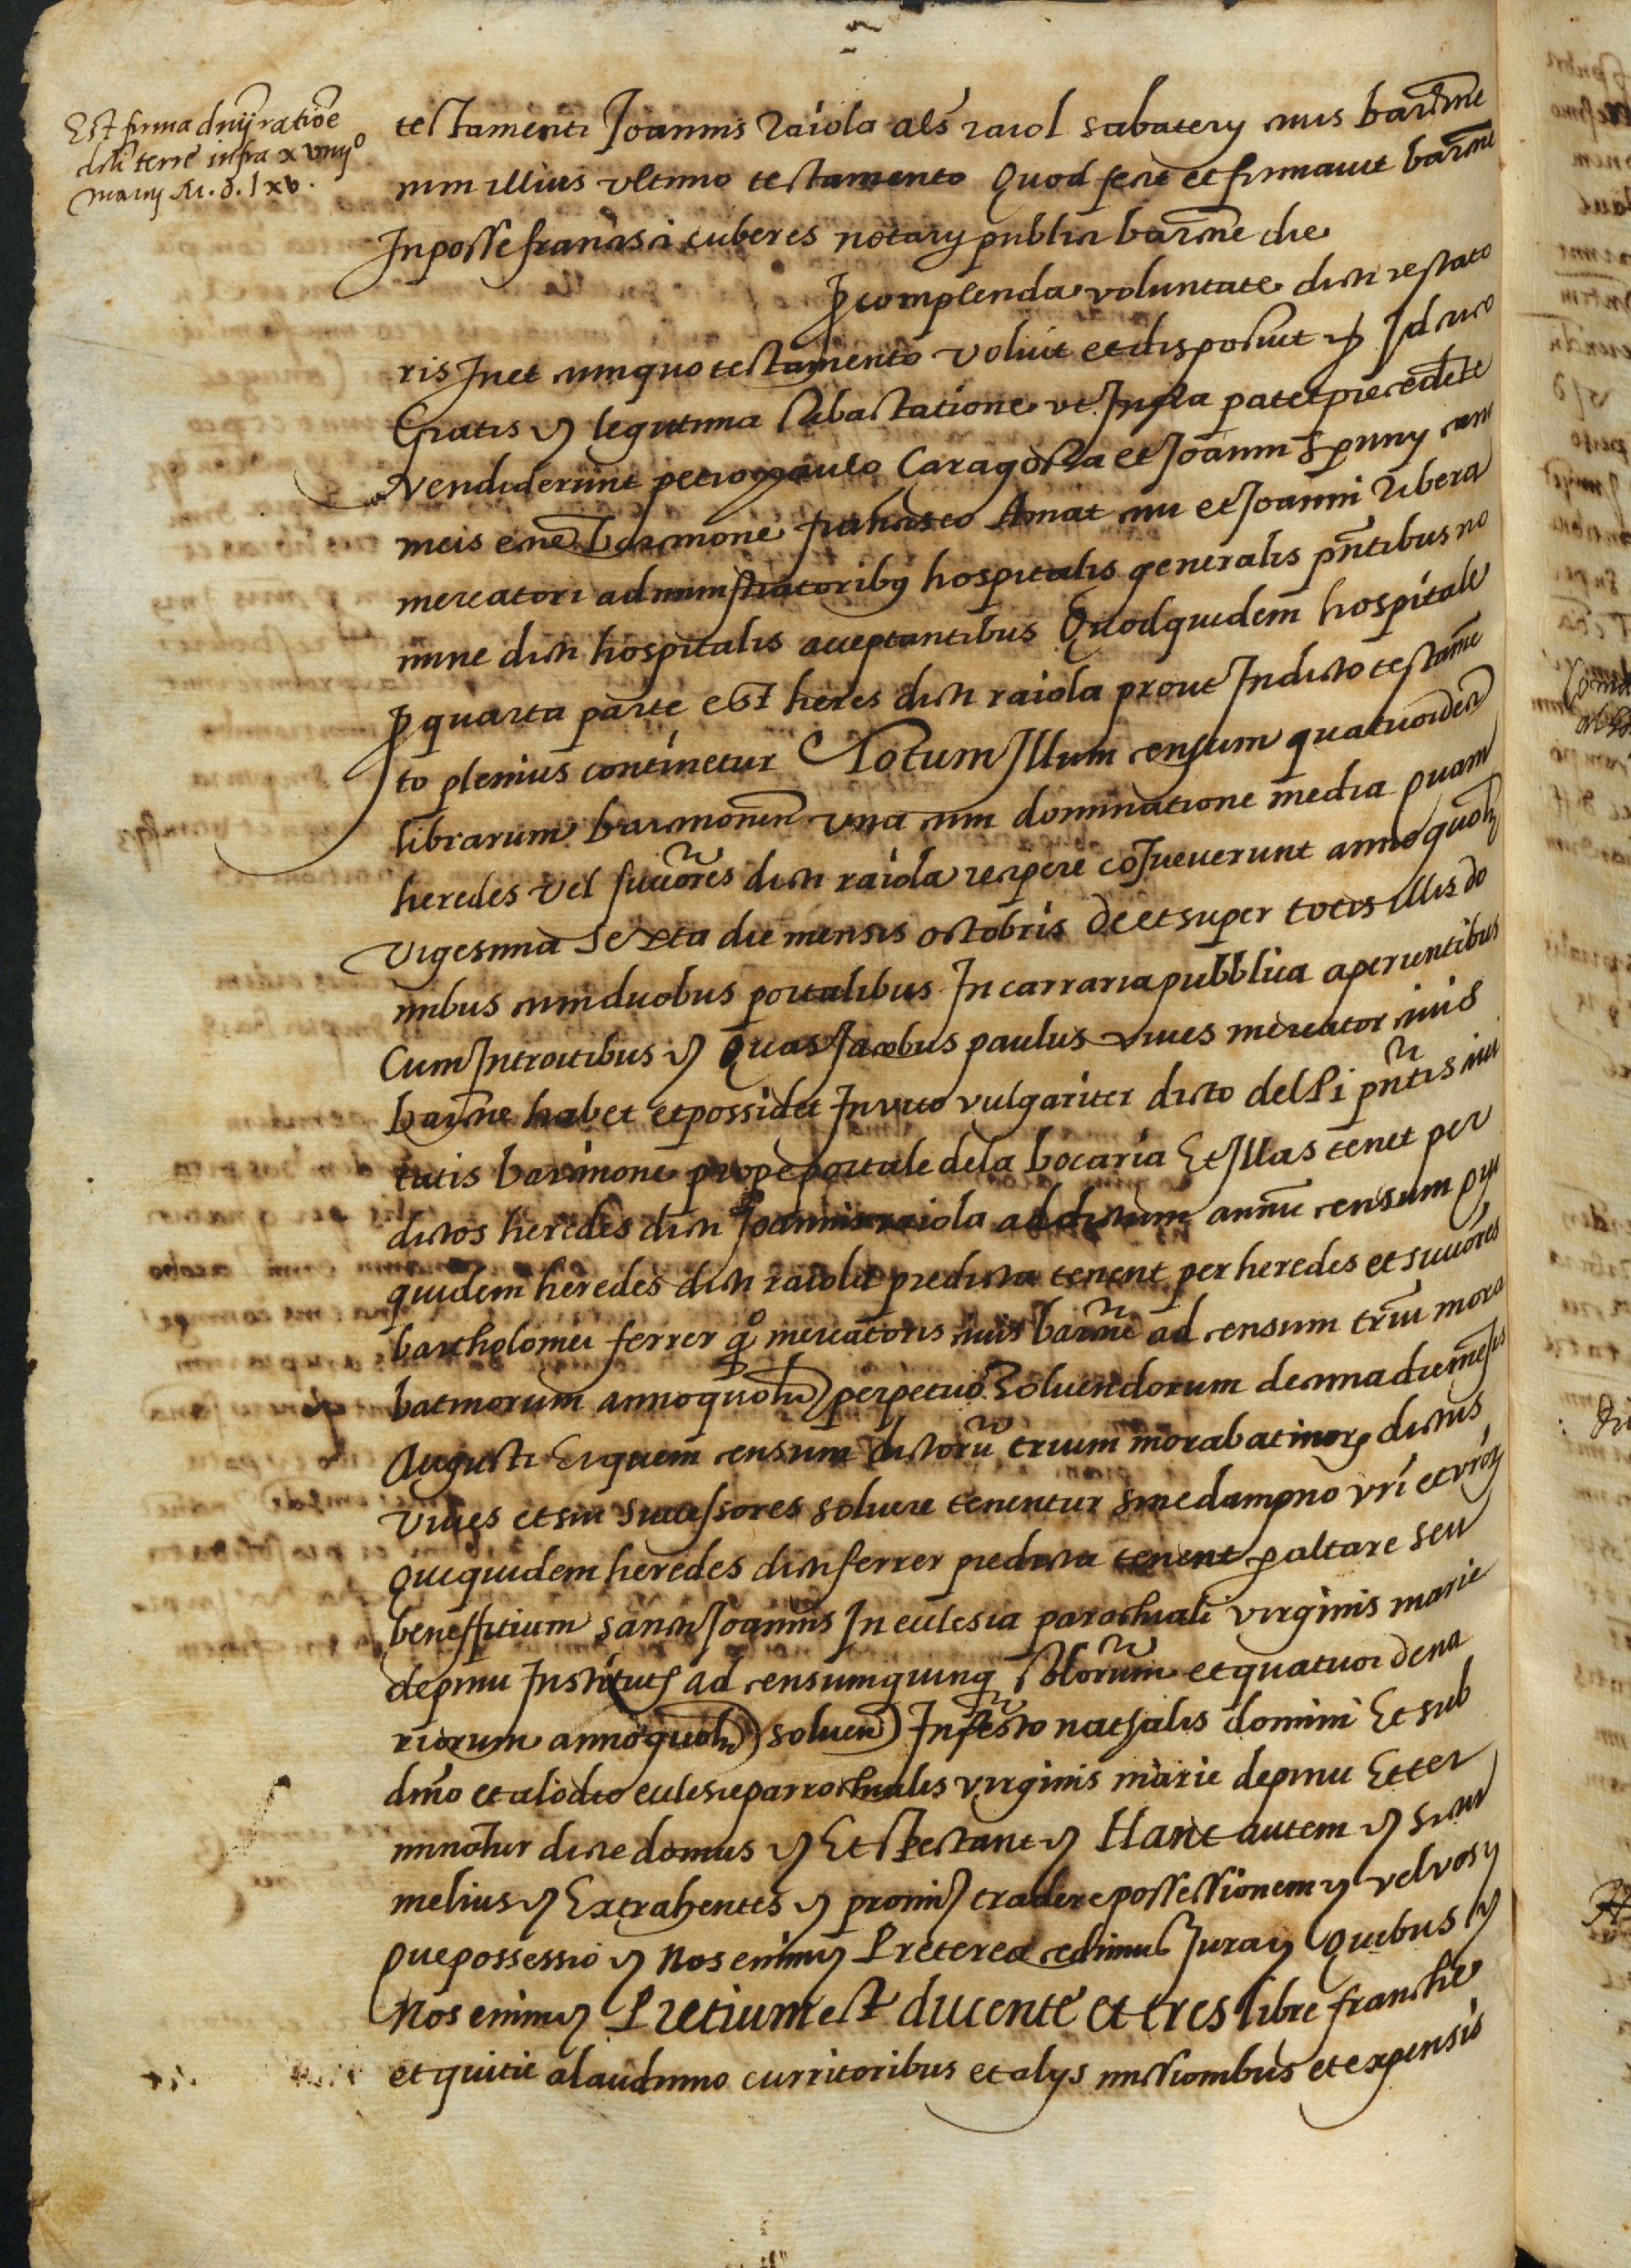 Est firma dnij ratioe
dicti terre infra xviiijº
marcij M.d.lxv.
testamenti Joannis raiola als raiol sabaterij civis barcne
cum illius ultimo testamento Quod fecit et firmavit barcne
In posse francisci cuberes notarij publici barcne die
p complenda voluntate dicti testato
ris In et cum quo testamento voluit et disposuit Id circo
Gratis legittima subastatione ut Infra patet precedete
vendiderunt petro paulo Caragossa et Joanni
meis barcinone francisco Amat civi et Joanni Ribera
mercatori administratoribus hospitalis generalis pntibus no
mine dicti hospitalis acceptantibus Quodquidem hospitale
p quarta parte est heres dicti raiola prout In dicto testame
to plenius continetur Totum Illum censum quatuordeci
librarum barcinonen una cum dominatione media quam
heredes vel succores dicti raiola recipere cosueverunt anno quoli
vigesima sexta die mensis octobris de et super totis illis do
mibus cum duobus portalibus In carraria pubblica aperientibus
Cum Introitibus Quas Jacobus paulus vives mercator civis
barcne habet et possidet In vico vulgariter dicto del Pi pntis civi
tatis barcinone prope portale dela bocaria Et Illas tenet per
dictos heredes dicti Joannis raiola ad dictum annu censum qui
quidem heredes dicti raiola predicta tenent per heredes et succores
bartholomei ferrer qº mercatoris civis barcne ad censum triu mora
batinorum anno quoli perpetuo Solvendorum decima die mesis
Augusti Et quem censum dictoru trium morabatinorum dictus
vives et sui successores solvere tenentur sine dampno vri et vror
Quiquidem heredes dicti ferrer predicta tenent p altare seu
benefficium sancti Joannis In ecclesia parochiali virginis marie
de pinu Institut ad censum quinq solorum et quatuor dena
riorum anno quoli solven In festo natalis domini Et sub
dnio et alodio ecclesie parrochialis virginis marie de pinu Et ter
minatur dicte domus Et spectant Hanc autem sicut
melius Extrahentes promi tradere possessionem vel vos
Que possessio Nos enim Preterea cedimus Jura Quibus
Nos enim Pretium est ducente et tres libre franche
et quitie a laudimio curritoribus et alijs missionibus et expensis